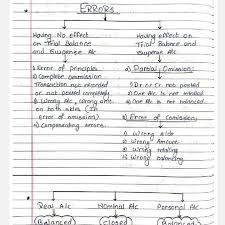 ERRORS
Having No effect
on Trial Balance
and Suspense A/c
Having effect on
Trial Balance and
Suspense A/c
1) Error of Principles
2) Complete Ommission
Transaction not recorded
or not posted completely
3) Wrong A/c, Wrong amt.
on both sides (In
error of omission)
4) Compensating errors.
a) Partial Omission:
1) Dr or Cr not posted
2) One A/c is not totalled
3) One A/c is not balanced.
B) Error of Comission,
1) Wrong side
2) Wrong Amount.
3) Wrong totalling
4) Wrong balancing.
Real A/c
Nominal A/c
Personal A/c
Balanced
Closed
Balanced